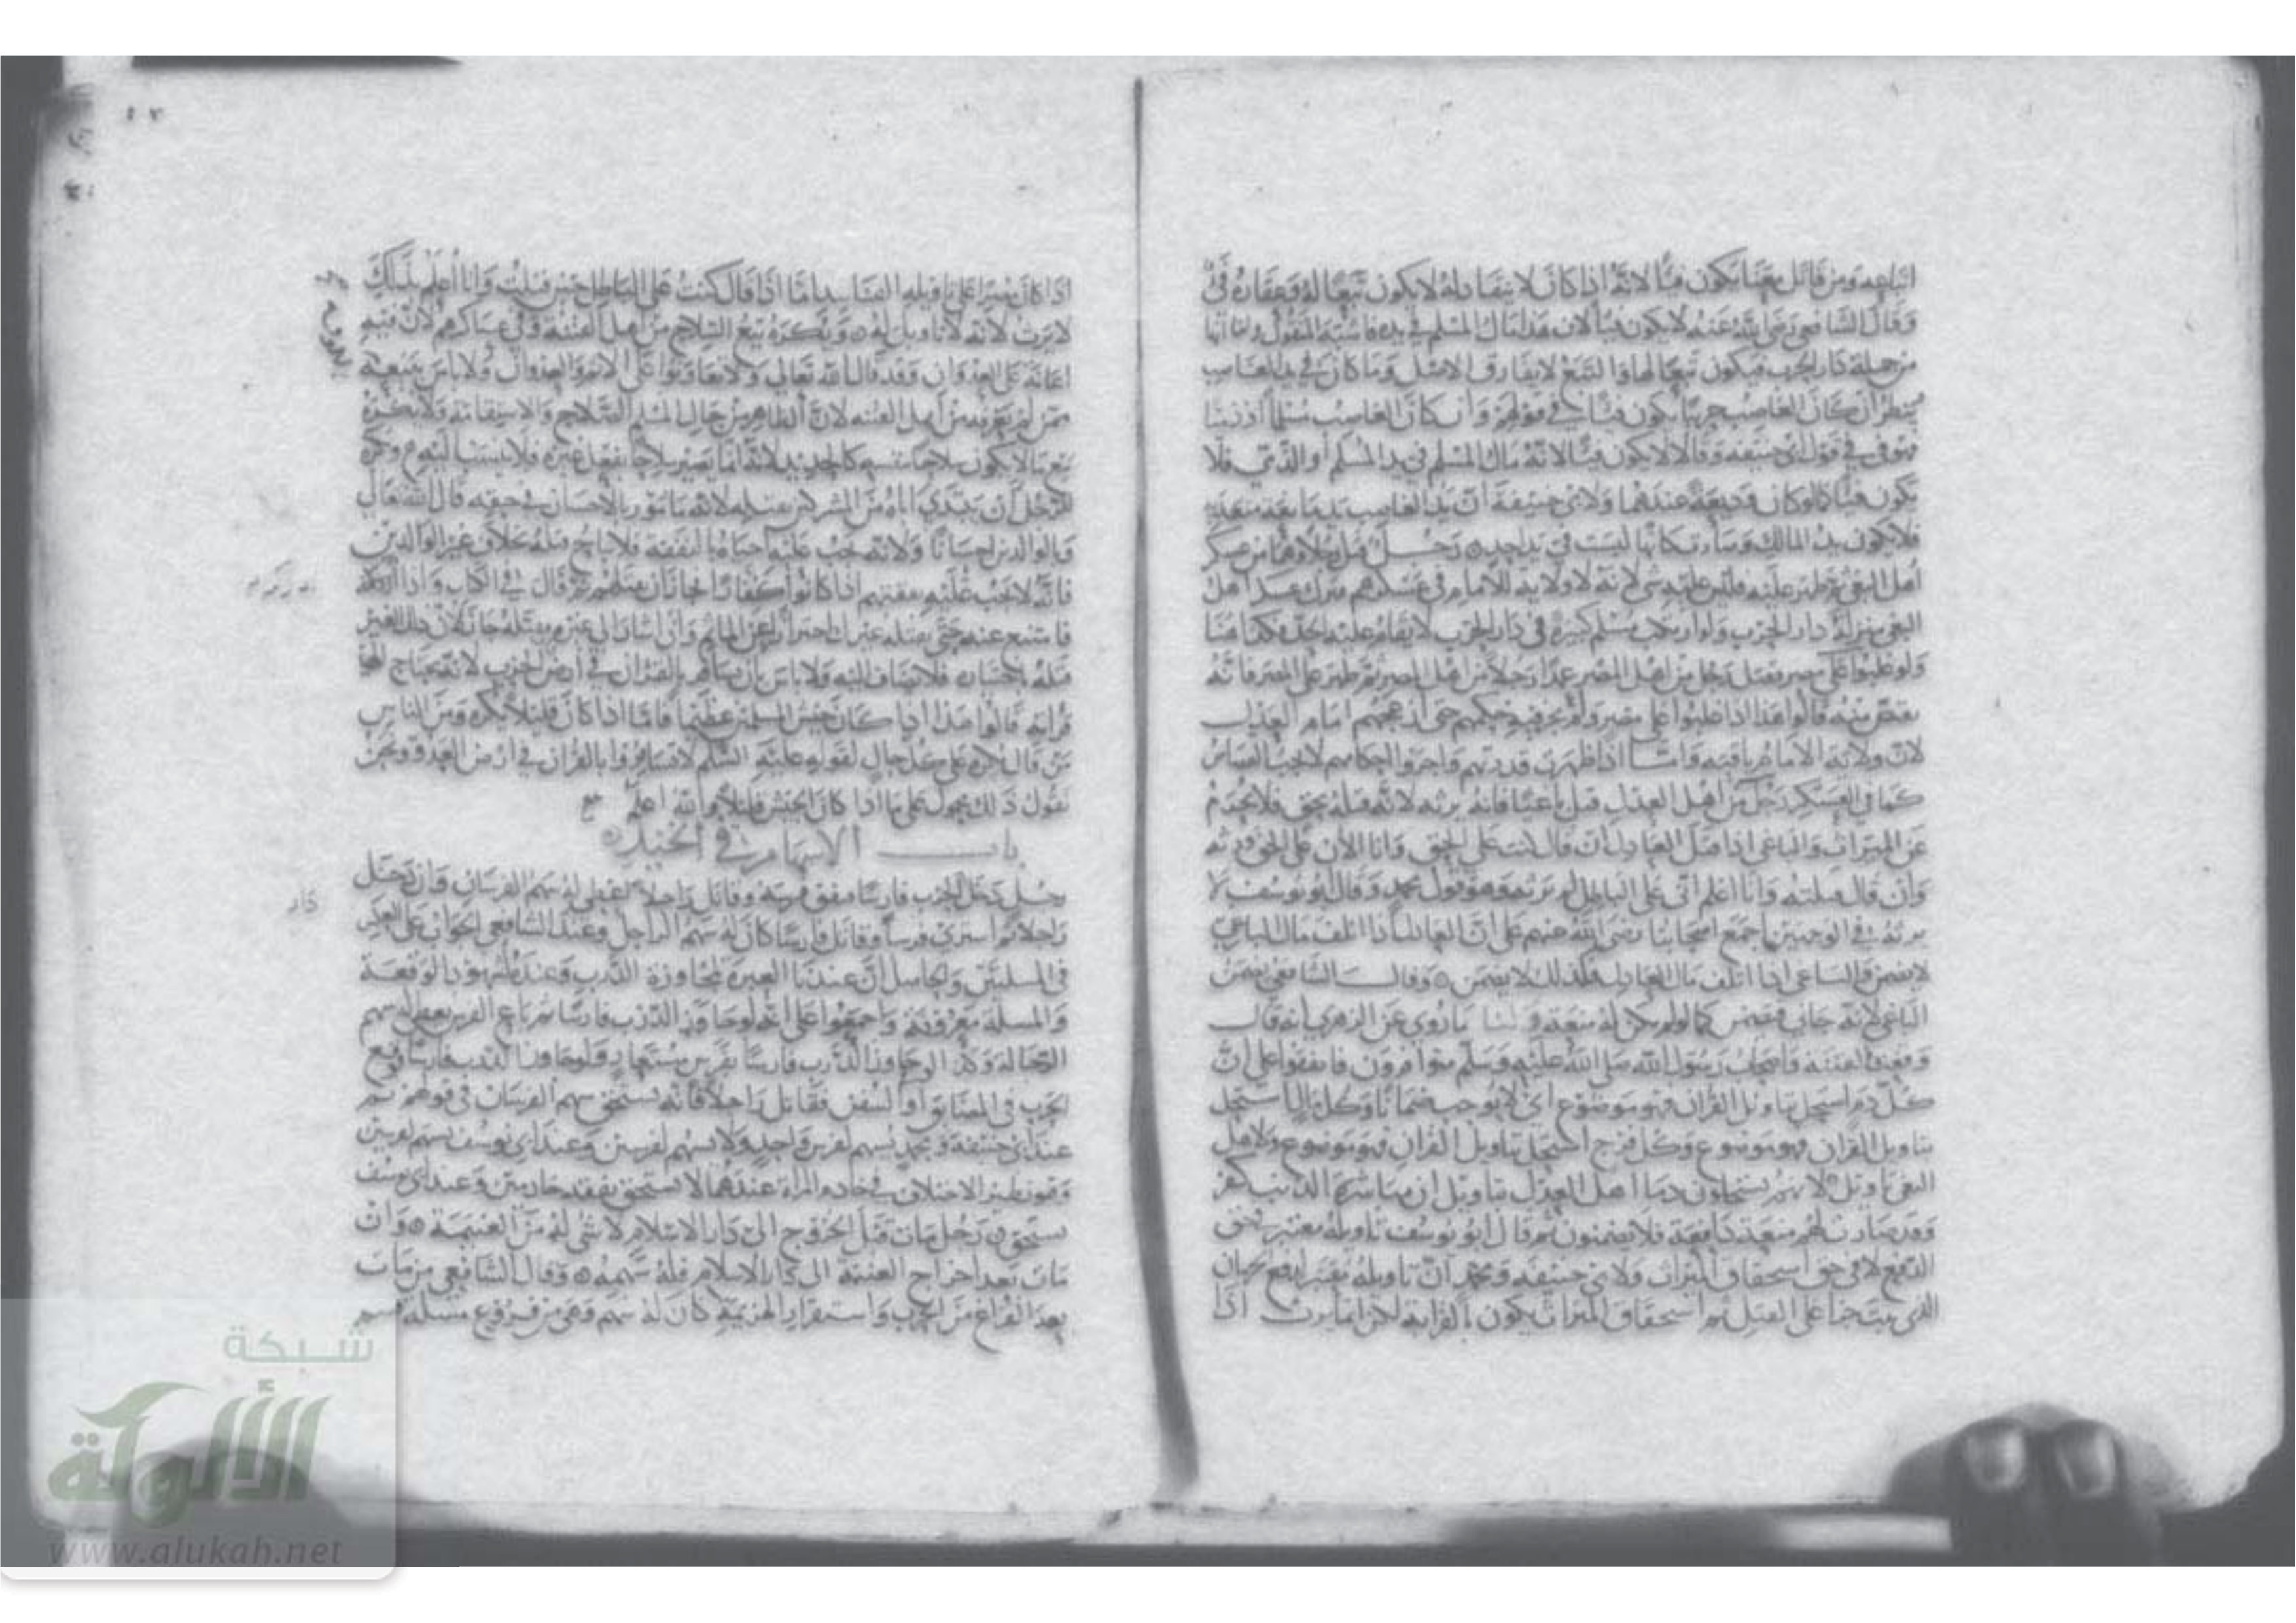 اتباعه ومن قاتل معنا يكون فيئا لانه اذا كان لا ينقاد له لا يكون تبعا له وعقاره فئ
وقال الشافعي رضي الله عنه لا يكون فيئا لان هذا مال المسلم في يده فاشبه المنقول ولنا انها
من جملة دار الحرب فيكون تبعا لها اذا التبع لا يفارق الاصل وما كان في يد الغاصب
ينظر ان كان الغاصب حربيا يكون فيئا في قولهم وان كان الغاصب مسلما او ذميا
فهو فئ في قول ابي حنيفه وقالا لا يكون فيئا لانه مال المسلم في يد المسلم او الذمي فلا
يكون فيئا كما لو كان وديعة عندهما ولابي حنيفة ان يد الغاصب يد مانعة متعدية
فلا يكون يد المالك وصار كانها ليست في يد احد رجل قتل رجلا وهما من عسكر
اهل البغي ثم ظهر عليه فليس عليه شي لانه لا ولاية للامام في عسكرهم فنزل عسكر اهل
البغي منزلة دار الحرب ولو ارتكب مسلم كبيرة في دار الحرب لا يقام عليه الحد فكذا هنا
ولو غلبوا على مصر فقتل رجل من اهل المصر عمدا رجلا من اهل المصر ثم ظهر على المصر فانه
يقتص منه قالوا هذا اذا غلبوا على مصر ولم يجر فيه حكمهم حتى ازعجهم امام العدل
لان ولاية الامام باقية واما اذا ظهرت قدرتهم واجروا احكامهم لا يجب القصاص
كما في العسكر رجل من اهل العدل قتل باغيا فانه يرثه لانه قتله بحق فلا يحرم
عن الميراث والباغي اذا قتل العادل ان قال كنت على الحق وانا الان على الحق ورثه
وان قال قتلته وانا اعلم اني على الباطل لم يرثه وهو قول محمد وقال ابو يوسف لا
يرثه في الوجهين اجمع اصحابنا رضي الله عنهم على ان العادل اذا اتلف مال الباغي
لا يضمن والباغي اذا اتلف مال العادل فكذلك لا يضمن وقال الشافعي يضمن
الباغي لانه جاني فيضمن كما لو لم يكن له منعة ولنا ما روي عن الزهري انه قال
وقعت الفتنة واصحاب رسول الله صلى الله عليه وسلم متوافرون فاتفقوا على ان
كل دم استحل بتاويل القران فهو موضوع اي لا يوجب ضمانا وكل مال استحل
بتاويل القران فهو موضوع وكل فرج استحل بتاويل القران فهو موضوع ولاهل
البغي تاويل لانهم يستحلون دما اهل العدل بتاويل ان مباشرة الذنب كفر
وقد صارت لهم منعة دافعة فلا يضمنون ثم قال ابو يوسف تاويله معتبر في حق
الدفع لا في حق استحقاق الميراث ولابي حنيفه ومحمد ان تاويله يعتبر لدفع حرمان
الذي يبتنى على القتل ثم استحقاق الميراث يكون بالقرابة لكن انما يرث اذا
اذا كان مصرا على تاويله الفاسد اما اذا قال كنت على الباطل حين قتلت وانا اعلم بذلك
لا يرث لانه لا تاويل له ويكره بيع السلاح من اهل الفتنه وفي عساكرهم لان فيه
اعانة على العدوان وقد قال الله تعالى ولا تعاونوا على الاثم والعدوان ولا باس ببيعه
ممن لم يعرفه من اهل الفتنه لان الظاهر من حال المسلم الصلاح والاستقامة ولا يكره
بيع ما لا يكون سلاحا بنفسه كالحديد لانه انما يصير سلاحا بفعل غيره فلا ينسب اليه وكره
للرجل ان يبتدي اباه من المشركين بقتله لانه مامور بالاحسان في حقه قال الله تعالى
وبالوالدين احسانا ولانه يجب عليه احياه بالنفقه فلا يباح قتله بخلاف غير الوالدين
فانه لا يجب عليه نفقتهم اذا كانوا كفارا فجاز ان يقتلهم ثم قال في الكتاب واذا ادركه
فامتنع عنه حتى يقتله غيره احترازا عن الماثم وان اشار الى غيره بقتله جاز لان ذلك الغير
قتله باختياره فلا يضاف اليه ولا باس بان يسافر بالقران في ارض الحرب لانه يحتاج الى
قرانه قالوا هذا اذا كان جيش المسلمين عظيما فاما اذا كان قليلا يكره ومن الناس
من قال يكره على كل حال لقوله عليه السلم لا تسافروا بالقران في ارض العدو ونحن
نقول ذلك محمول على ما اذا كان الجيش قليلا والله اعلم
باب الاسهام في الخيل
رجل دخل الحرب فارسا فنفق فرسه وقاتل راجلا يعطى له سهم الفرسان وان دخل
راجلا ثم اشترى فرسا وقاتل فارسا كان له سهم الراجل وعند الشافعي الجواب على العكس
في المسلتين والحاصل ان عندنا العبرة لمجاوزة الدرب وعنده لشهود الوقعة
والمسلة معروفة واجمعوا على انه لو جاوز الدرب فارسا ثم باع الفرس يعطى له سهم
الرجاله وكذا لو جاوز الدرب فارسا بفرس مستعار ولو جاوز الدرب فارسا فوقع
الحرب في المضايق او السفن فقاتل راجلا فانه يستحق سهم الفرسان في قولهم ثم
عند ابي حنيفه ومحمد يسهم لفرس واحد ولا يسهم لفرسين وعند ابي يوسف يسهم لفرسين
وهو نظير الاختلاف في خادم المراة عندهما لا تستحق نفقة خادمين وعند ابي يوسف
تستحق رجل مات قبل الخروج الى دار الاسلام لا شي له من الغنيمة وان
مات بعد اخراج الغنيمة الى دار الاسلام فله سهمه وقال الشافعي من مات
بعد الفراغ من الحرب واستقرار الهزيمة كان له سهم وهي من فروع مسلة قسم
دار
شبكة
الألوكة
www.alukah.net